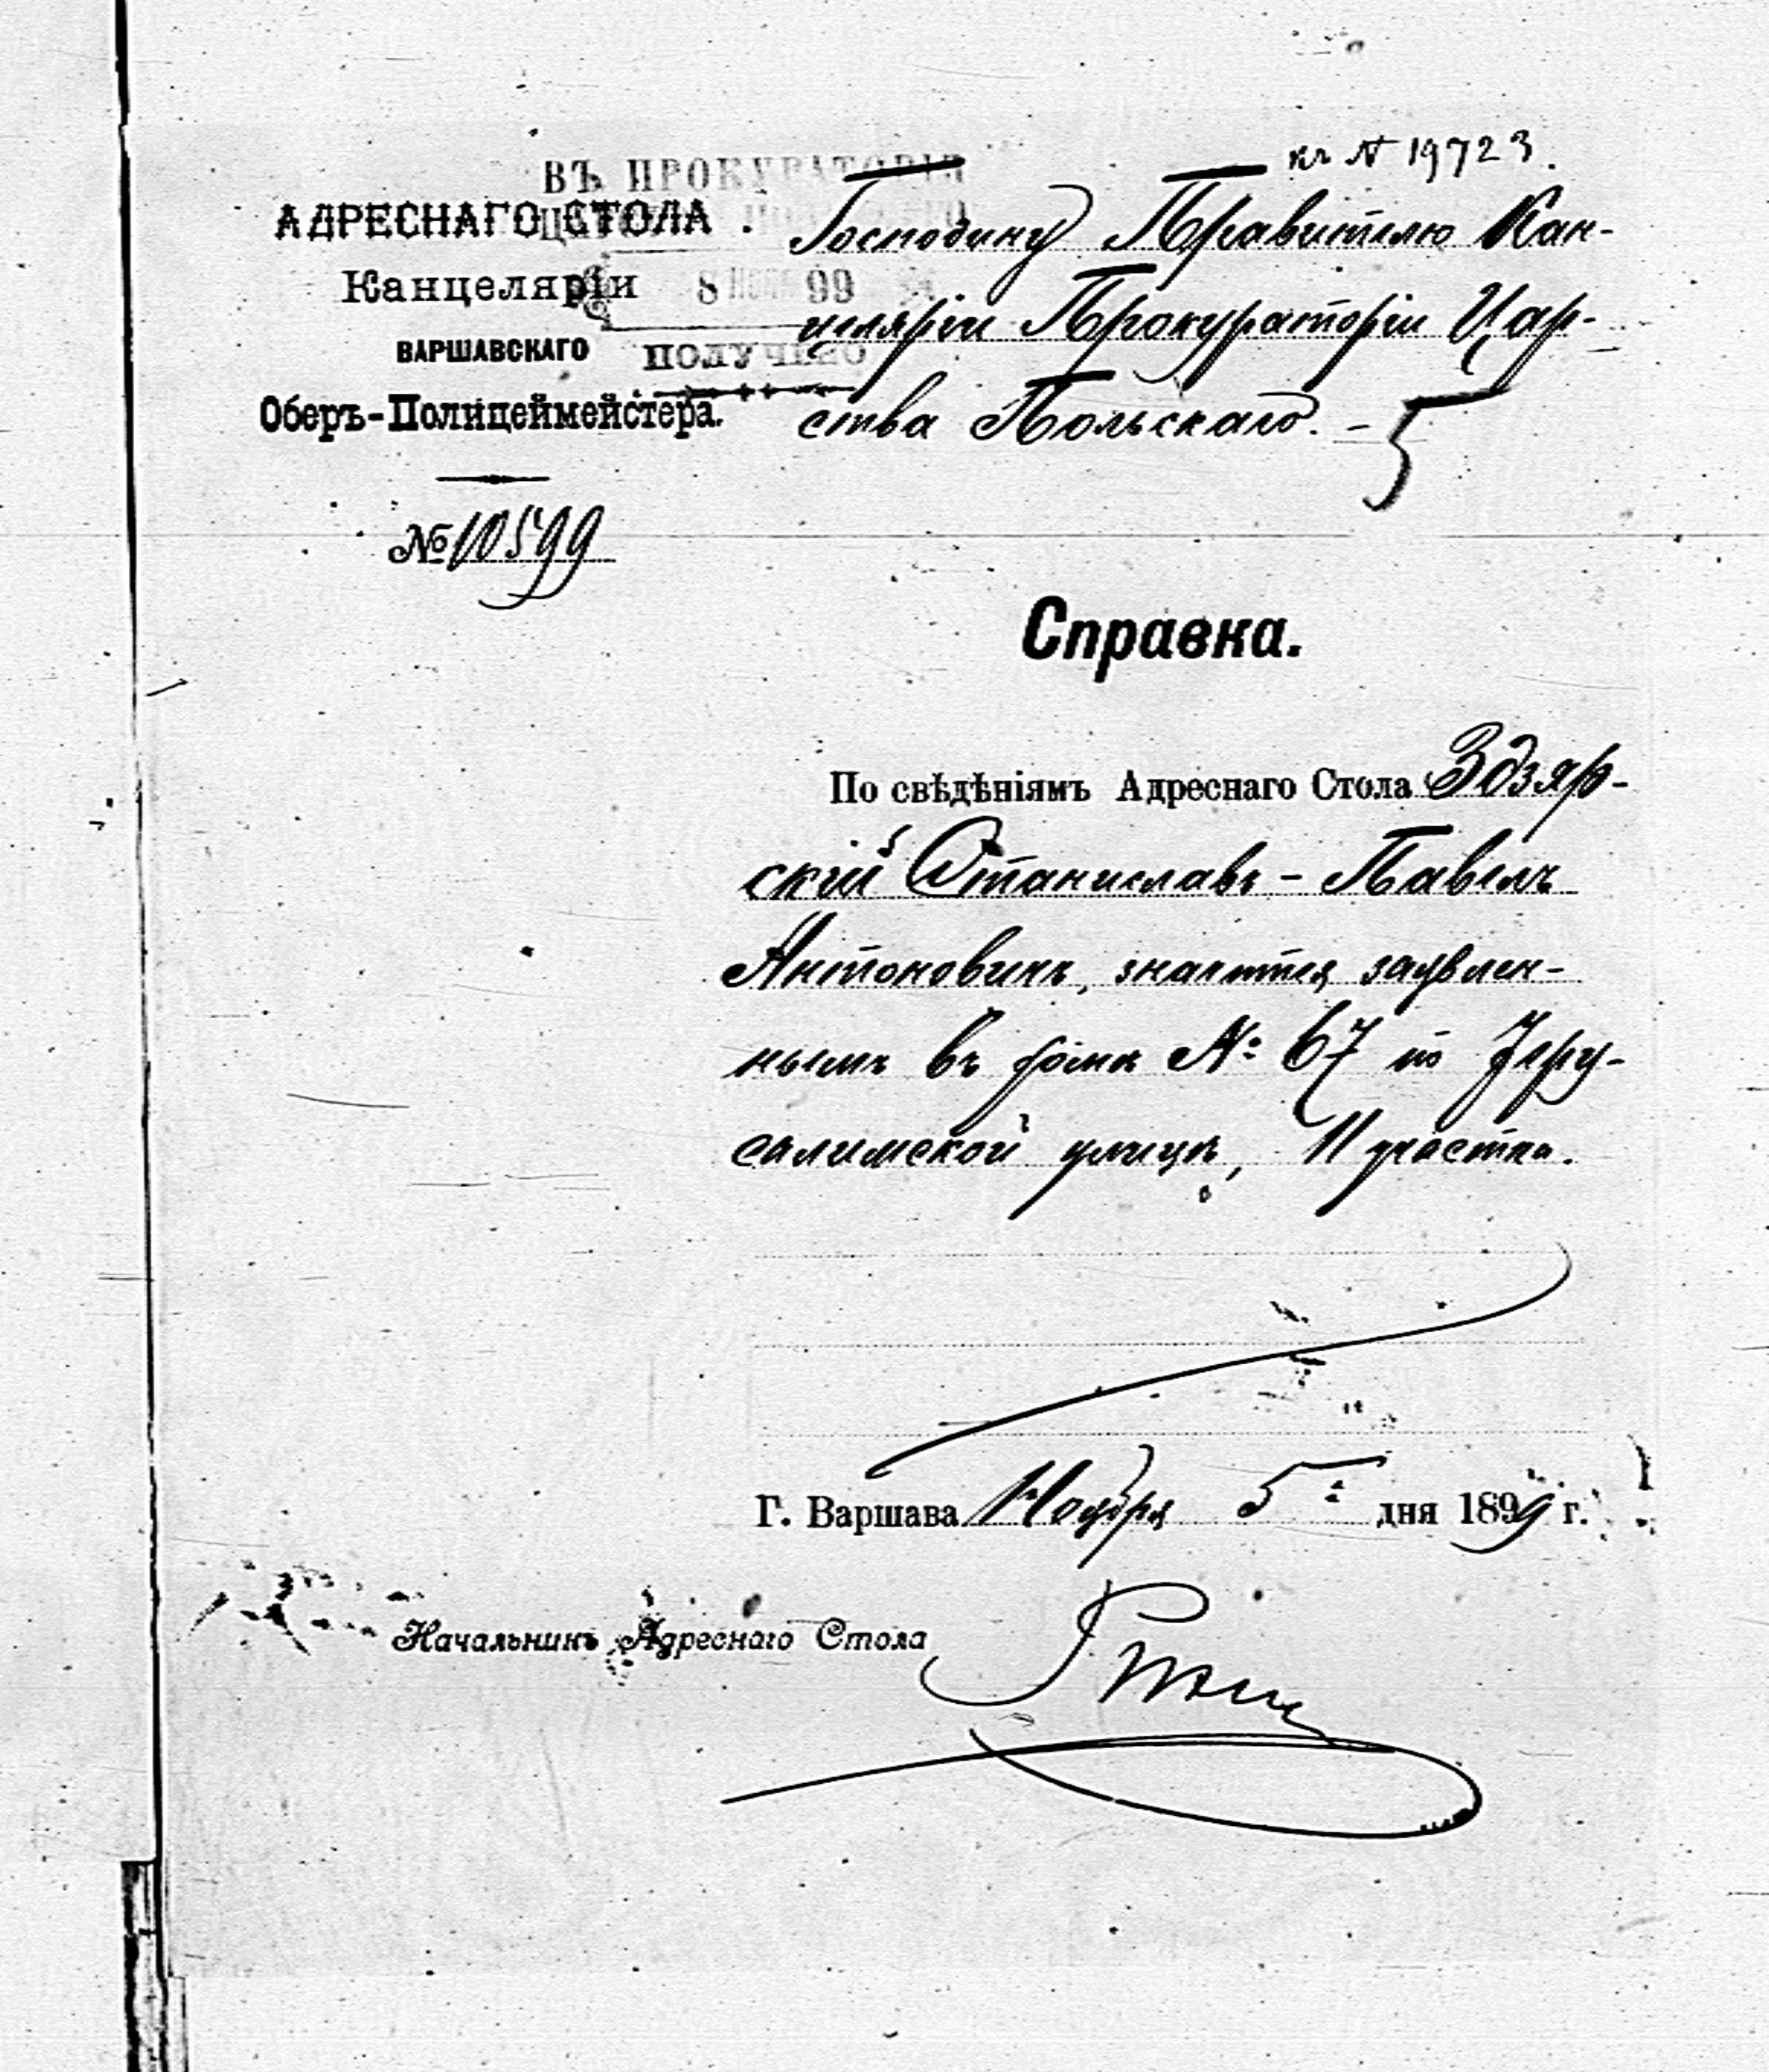 къ № 19723.
ВЪ ПРОКУРАТОРІИ
АДРЕСНАГО СТОЛА
Канцеляріи
ВАРШАВСКАГО
Оберъ-Полицеймейстера.
8 99
ПОЛУЧЕНО
№ 10599
Господину Правителю Кан-
целяріи Прокураторіи Цар-
ства Польскаго. -
5
Справка.
По свѣдѣніямъ Адреснаго Стола Здзяр-
скій Станиславъ - Павелъ
Антоновичъ, значится заявлен-
нымъ въ домѣ № 67 по Іеру-
салимской улицѣ, 11 участка.
Г. Варшава Ноября 5 дня 1899 г.
Начальникъ Адреснаго Стола